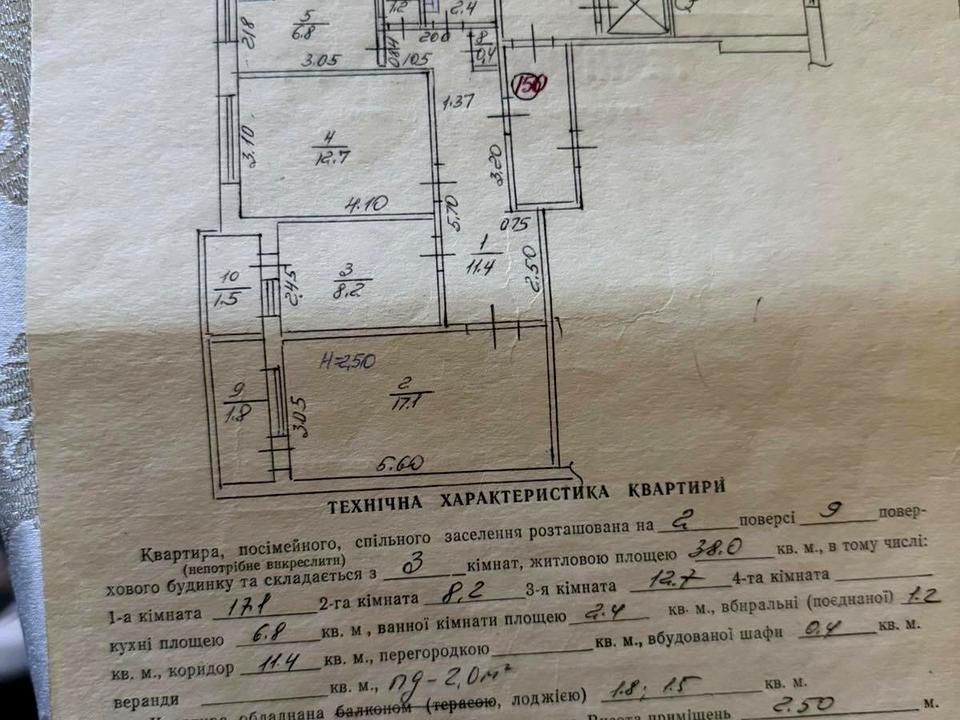 5
6.8
2.18
3.05
1.2
2.4
2.00
0.84
1.05
8
0.4
150
1.37
3.10
4
12.7
3.20
4.10
5.70
0.75
1
11.4
2.50
10
1.5
2.45
3
8.2
H=2,50
9
1.8
3.05
2
17.1
5.60
ТЕХНІЧНА ХАРАКТЕРИСТИКА КВАРТИРИ
Квартира, посімейного, спільного заселення розташована на 2 поверсі 9 повер-
(непотрібне викреслити)
хового будинку та складається з 3 кімнат, житловою площею 38.0 кв. м., в тому числі:
1-а кімната 17.1 2-га кімната 8,2 3-я кімната 12.7 4-та кімната
кухні площею 6.8 кв. м , ванної кімнати площею 2.4 кв. м., вбиральні (поєднаної) 1.2
кв. м., коридор 11.4 кв. м., перегородкою кв. м., вбудованої шафи 0,4 кв. м.
веранди кв. м., пд - 2,0 м²
Квартира обладнана балконом (терасою, лоджією) 1.8; 1.5 кв. м.
Висота приміщень 2.50 м.